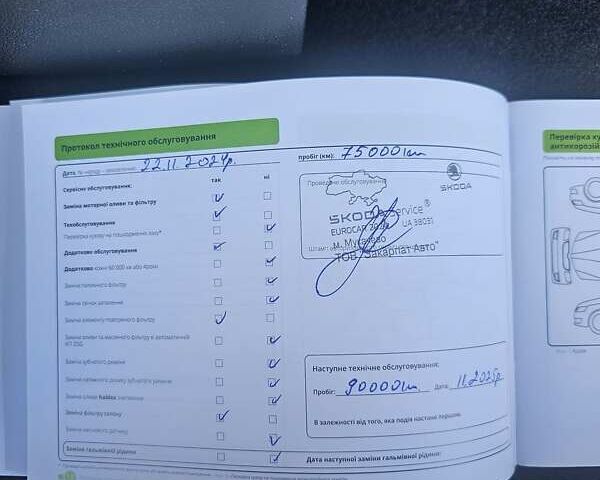 Протокол технічного обслуговування
Дата 22.11.2024р.
пробіг (км): 75000км
так ні
Сервісне обслуговування:
Заміна моторної оливи та фільтру
Техобслуговування
Перевірка кузову на пошкодження лаку*
Додаткове обслуговування
Додатково кожні 60 000 км або 4роки
Заміна паливного фільтру
Заміна свічок запалення
Заміна елементу повітряного фільтру
Заміна оливи та масляного фільтру в автоматичній
КП DSG
Заміна зубчатого ременя
Заміна натяжного ролику зубчатого ременя
Заміна оливи haldex
Заміна фільтру салону
Заміна гальмівної рідини
Проведене обслуговування
SKODA
SKODA Service®
EUROCAR UA 98031
м. Мукачево
ТОВ "Закарпат Авто"
Штамп
Наступне технічне обслуговування:
Пробіг: 90000км Дата: 11.2025р.
В залежності від того, яка подія настане першою.
Дата наступної заміни гальмівної рідини:
Перевірка ку
антикорозій